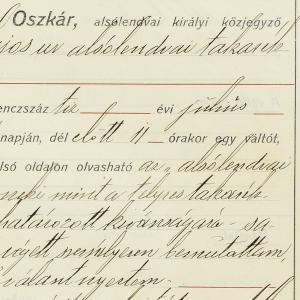 Oszkár, alsólendvai királyi közjegyző
úr alsólendvai takarék
enczszáz tíz évi július
napján, dél előtt 11 órakor egy váltót,
lsó oldalon olvasható az „alsólendvai
neki mint a teljes takarék
határozott kivánságára - sa-
személyesen bemutattam,
választ nyertem: